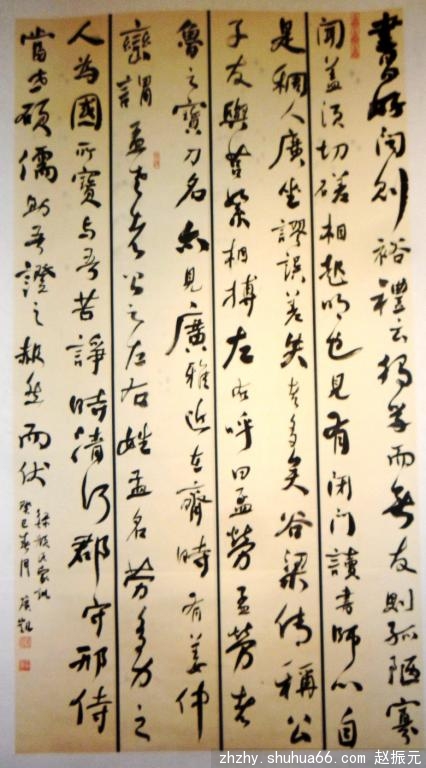 書曰好問則裕禮云獨學而無友則孤陋寡
聞蓋須切磋相起明也見有閉門讀書師心自
是稠人廣坐謬誤差失者多矣谷梁傳稱公
子友與莒挐相搏左右呼曰孟勞孟勞者
魯之寶刀名亦見廣雅近在齊時有姜仲
謂孟者公之左右姓孟名勞多力之
人為國所寶與吾苦諍時清河郡守邢侍
當世碩儒助吾證之赧然而伏
氏家訓
癸巳春月
zhzhy.shuhua66.com 赵振元